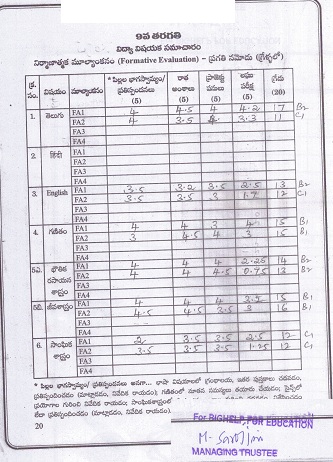 9వ తరగతి
విద్యా విషయక సమాచారం
నిర్మాణాత్మక మూల్యాంకనం (Formative Evaluation) – ప్రగతి నమోదు (గ్రేడ్లలో)
క్ర. సం. విషయం మూల్యాంకనం * పిల్లల భాగస్వామ్యం/ ప్రతిస్పందనలు (5) రాత అంశాలు (5) ప్రాజెక్టు పనులు (5) లఘు పరీక్ష (5) గ్రేడు (20)
1. తెలుగు FA1 4 4.5 4 4.2 17 B2
FA2 4 3.5 3.3 11 C1
FA3
FA4
2. हिन्दी FA1
FA2
FA3
FA4
3. English FA1 3.5 3.2 3.5 2.5 13 B2
FA2 3.5 3.5 3 12 C1
FA3
FA4
4. గణితం FA1 4 4 3 4 15 B1
FA2 3 4.5 4 3 15 B1
FA3
FA4
5ఎ. భౌతిక రసాయన శాస్త్రం FA1 4 4 4 2.25 14 B2
FA2 4 4 4.5 0.75 13 B2
FA3
FA4
5బి. జీవశాస్త్రం FA1 4 4 4 15 B1
FA2 4.5 4.5 3.5 3 16 B1
FA3
FA4
6. సాంఘిక శాస్త్రం FA1 2 3.5 3.5 2.5 12 C1
FA2 3.5 3.5 3.5 1.25 12 C1
FA3
FA4
* పిల్లల భాగస్వామ్యం/ ప్రతిస్పందనలు అనగా... భాషా విషయాలలో గ్రంథాలయ, ఇతర పుస్తకాలు చదవడం,
20
For BIGHELP FOR EDUCATION
MANAGING TRUSTEE